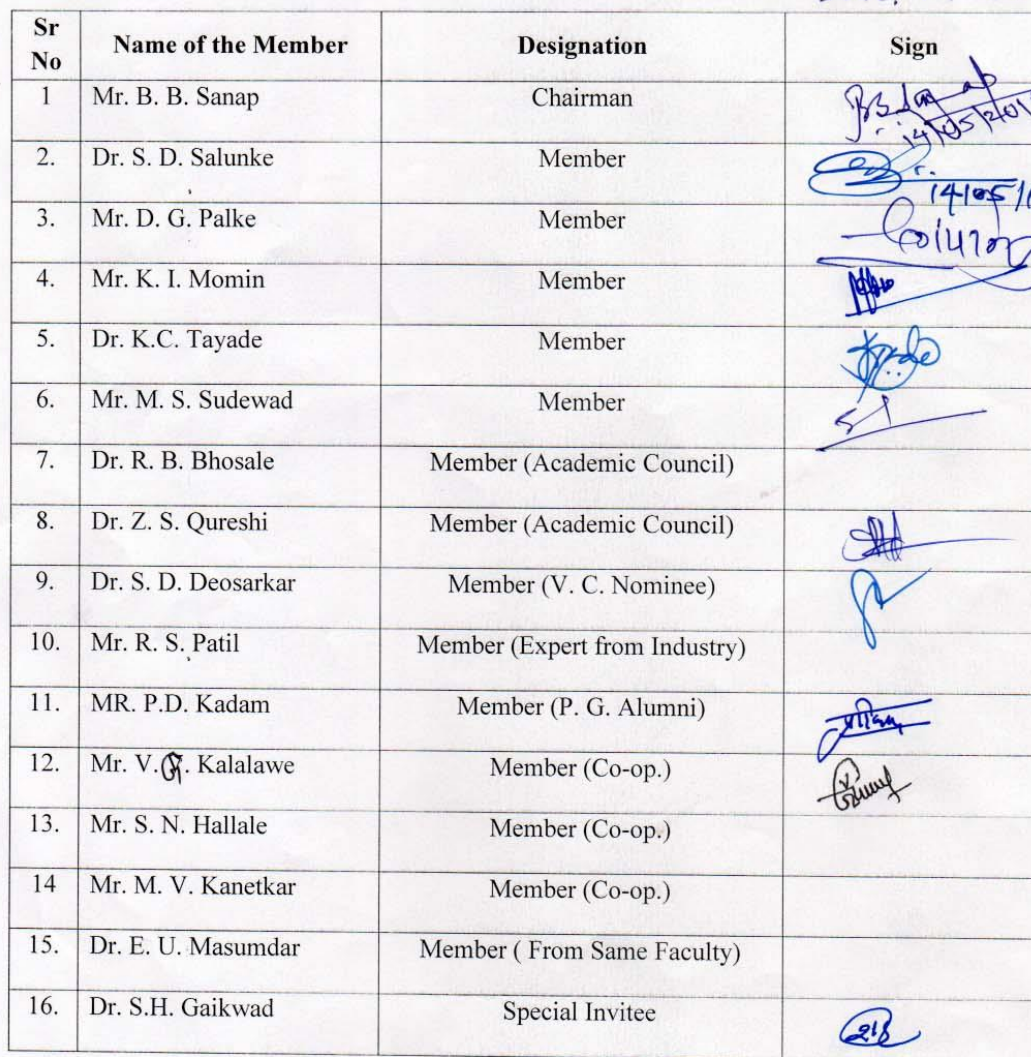 Sr No Name of the Member Designation Sign
1 Mr. B. B. Sanap Chairman
14/05/201
2. Dr. S. D. Salunke Member
14/05/1
3. Mr. D. G. Palke Member
4. Mr. K. I. Momin Member
5. Dr. K.C. Tayade Member
6. Mr. M. S. Sudewad Member
7. Dr. R. B. Bhosale Member (Academic Council)
8. Dr. Z. S. Qureshi Member (Academic Council)
9. Dr. S. D. Deosarkar Member (V. C. Nominee)
10. Mr. R. S. Patil Member (Expert from Industry)
11. MR. P.D. Kadam Member (P. G. Alumni)
12. Mr. V. G. Kalalawe Member (Co-op.)
13. Mr. S. N. Hallale Member (Co-op.)
14 Mr. M. V. Kanetkar Member (Co-op.)
15. Dr. E. U. Masumdar Member ( From Same Faculty)
16. Dr. S.H. Gaikwad Special Invitee